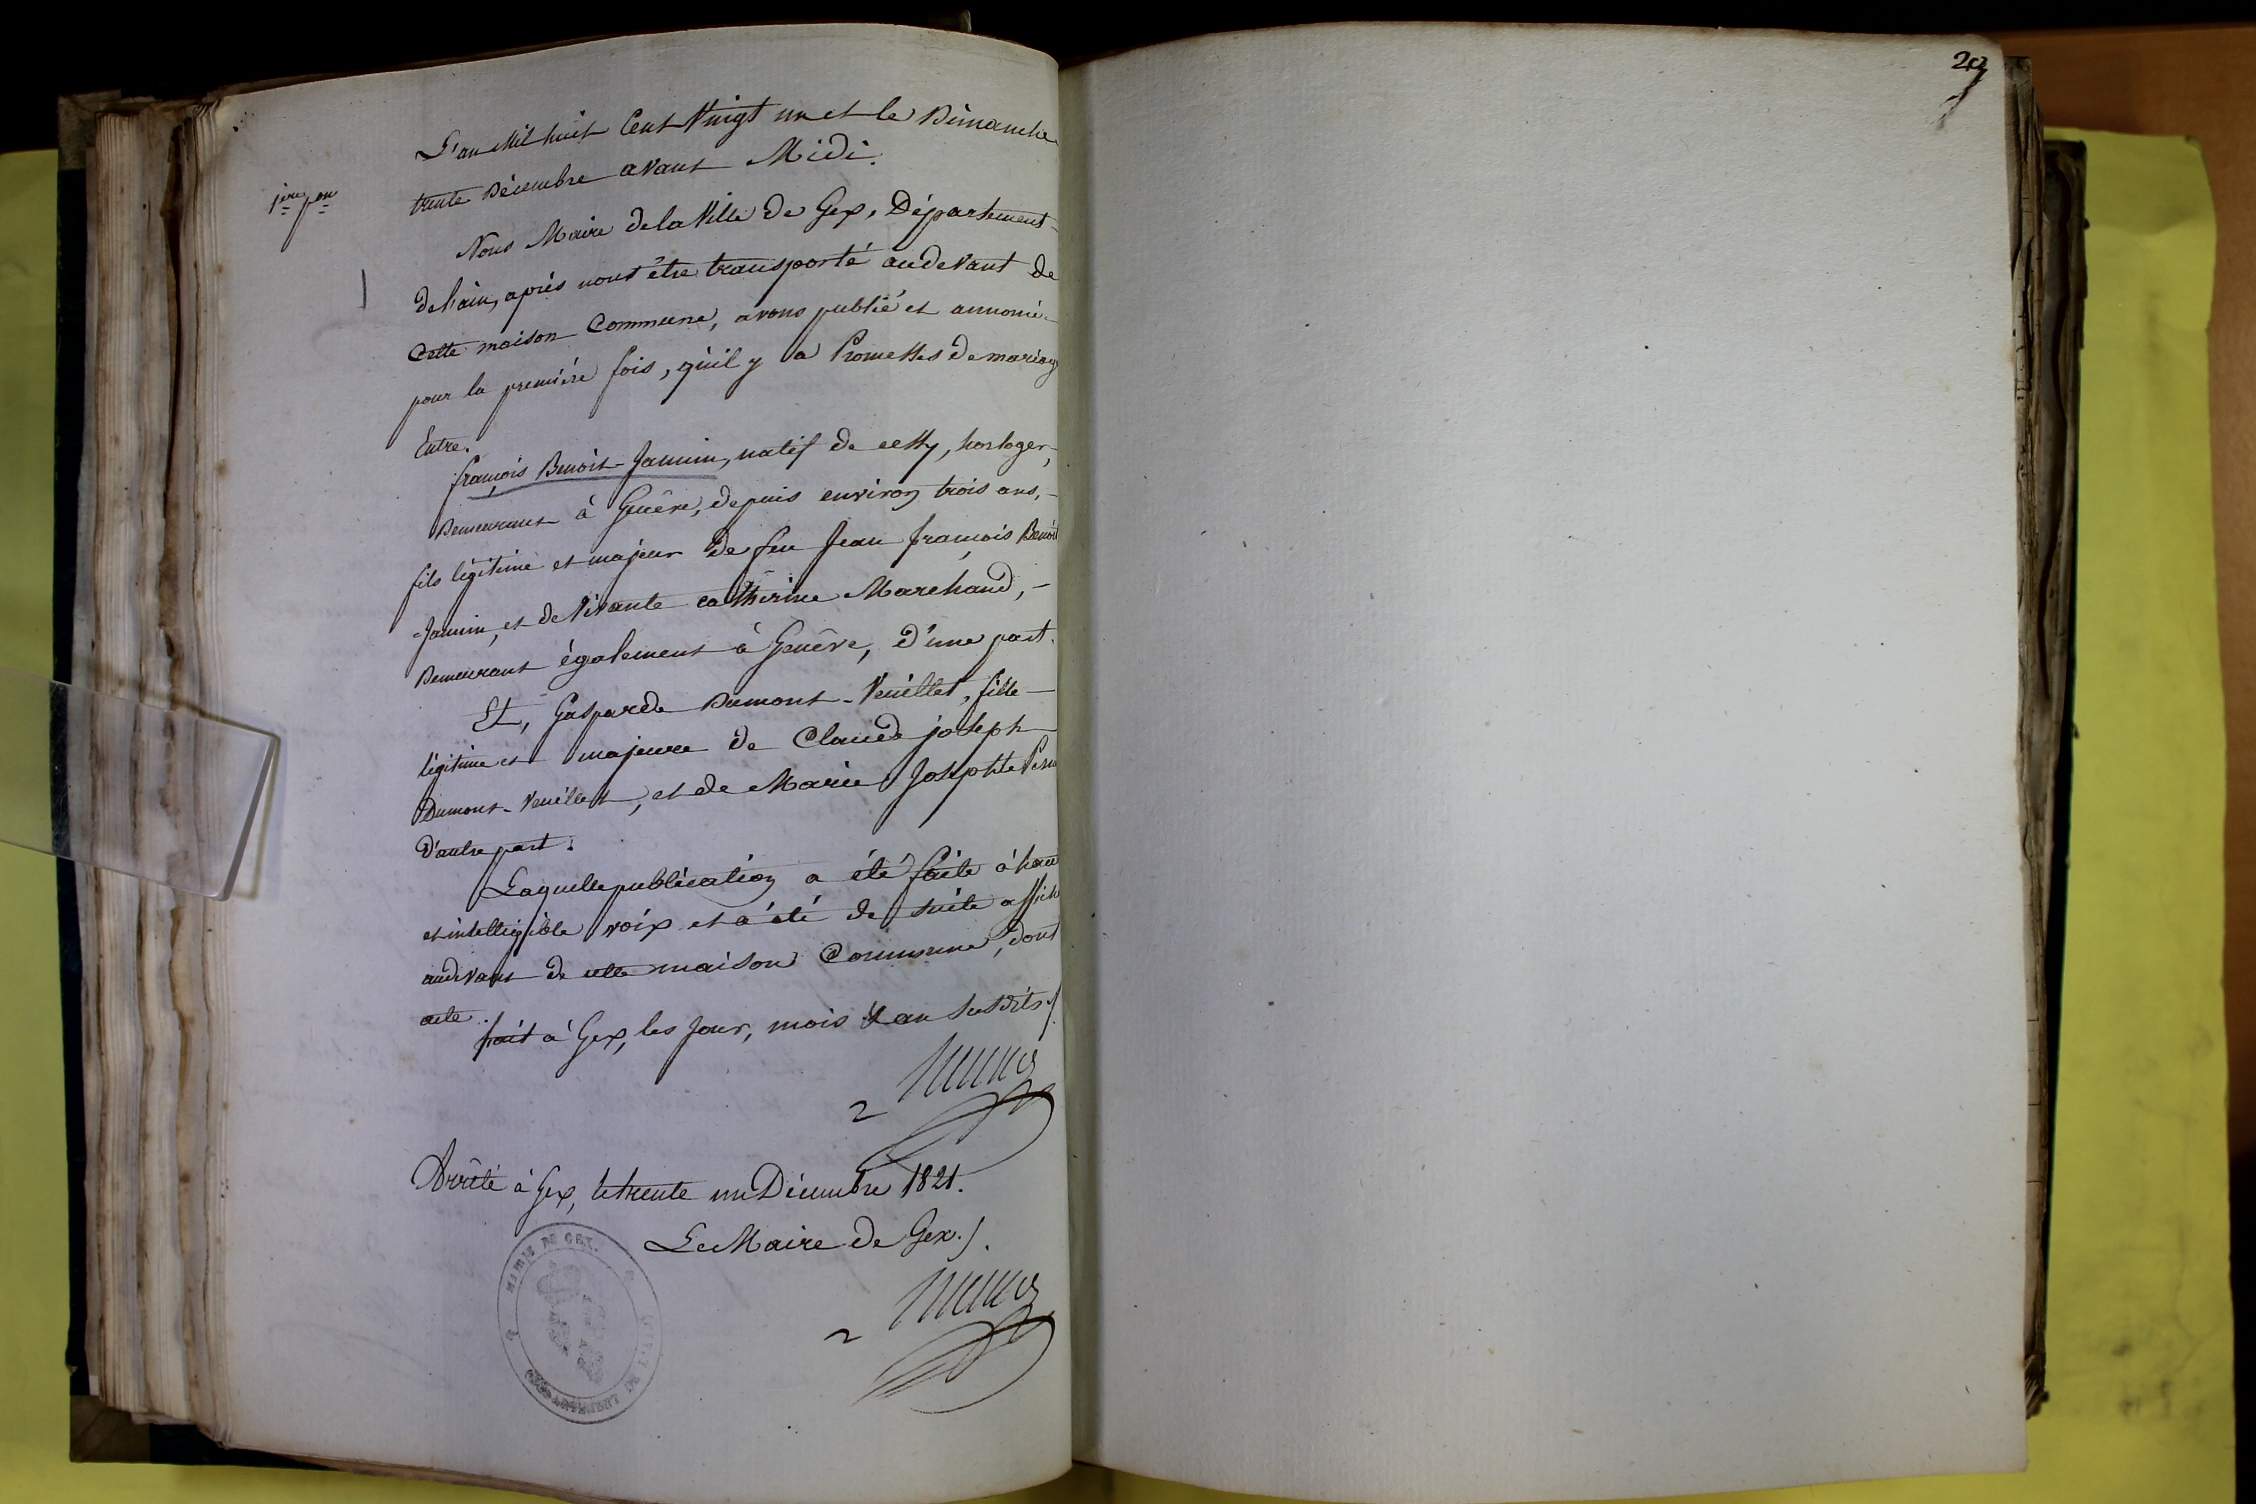 29
L'an Mil huit Cent Vingt un et le Dimanche
trente Décembre avant Midi.
1ere pon
Nous Maire de la Ville de Gex, Département
de l'ain, après nous être transporté audevant de
cette maison Commune, avons publié et annoncé
pour la première fois, qu'il y a Promesses de mariage
Entre.
françois Benoit-Jannin, natif de cessy, horloger,
Demeurant à Genêve, depuis environ trois ans,
fils légitime et majeur de feu Jean françois Benoit
-Jannin, et de Vivante catherine Marchand,
Demeurant également à Genêve, D'une part.
Et, Gasparde Dumont-Veuillet, fille
légitime et majeure de Claude joseph
Dumont-Veuillet, et de Marie Josephte
D'autre part.
Laquelle publication a été faite à haute
et intelligible voix et a été de suite affich
audevant de cette maison Commune, dont
acte.
fait à Gex, les Jour, mois et an susdits./
Arrêté à Gex, le trente un Décembre 1821.
Le Maire de Gex./.
MAIRIE DE GEX.